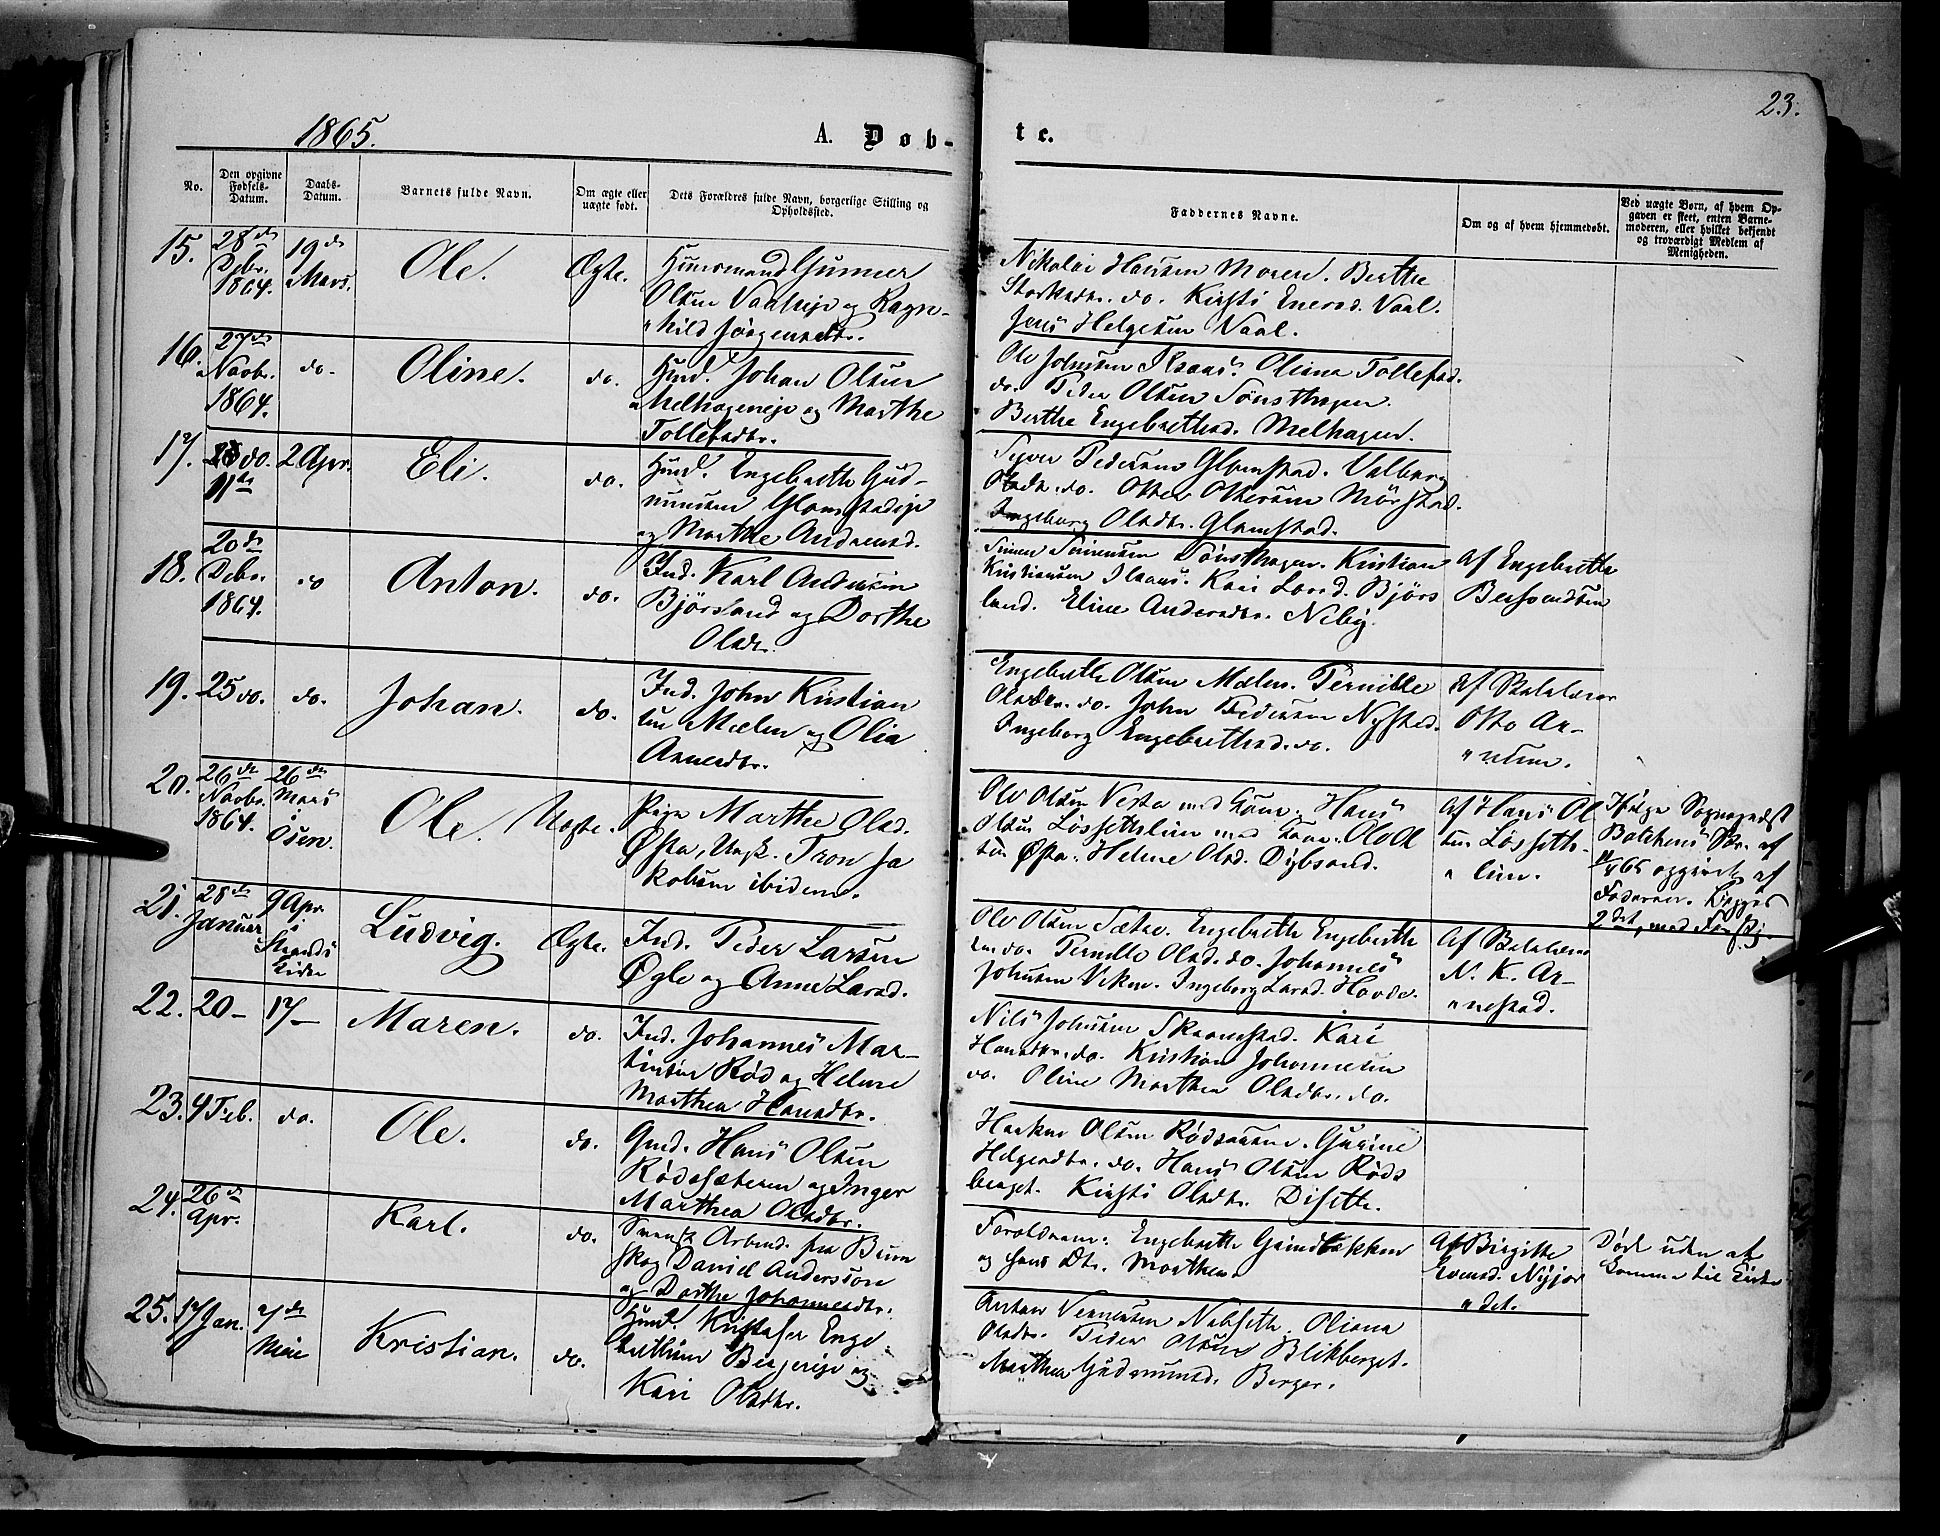 1865.
A. Døb-
te.
23.
No.
Den opgivne Fødsels-Datum.
Daabs-Datum.
Barnets fulde Navn.
Om ægte eller uægte født.
Dets Forældres fulde Navn, borgerlige Stilling og Opholdssted.
Faddernes Navne.
Om og af hvem hjemmedøbt.
Ved uægte Børn, af hvem Opgaven er skeet, enten Barnemoderen, eller hvilket bekjendt og troværdigt Medlem af Menigheden.
15. 28de Dcbr. 1864. 19de Mars. Ole. Ægte.
Huusmand Gunner
Olsen og Ragn-
hild Jörgensdtr.
Nikolai Hansen Moren. Berthe
do. Kirsti Enersd. Vaal.
Jens Helgesen Vaal.
16. 27de Novbr. 1864. do. Oline. do.
Hmd. Johan Olsen
Melhageneje og Marthe
Tollefsdtr.
Ole Johnsen Skaaus. Oliana Tollefsd.
do. Peder Olsen Sönsthagen.
Berthe Engebrethsd. Melhagen.
17. do. 11te 2 Apr. Eli. do.
Husm. Engebreth Gud-
mundsen Glomstadeje
og Marthe Andreasd.
Syver Pedersen Glomstad. Valborg
Olsdt. do. Otter Ottersen Mörstad.
Ingeborg Olsdtr. Glomstad.
18. 20de Dcbr. 1864. do Anton. do.
Ind. Karl Andersen
Björsland og Dorthe
Olsdr.
Simen Simensen Sönsthagen. Kristian
Kristiansen Skaaus. Kari Larsd. Björs
land. Eline Andersdtr. Neby.
Af Engebreth
19. 25 do. do. Johan. do.
Ind. John Kristian
sen Mælen og Olia
Arnesdtr.
Engebreth Olsen Mælen. Pernille
Olsdtr. do. John Pedersen Nysted.
Ingeborg Engebrethsd. do.
Af Skolelærer
Otto Ar-
ntsen.
20. 26de Novbr. 1864. 26de Mars i Osen. Ole. Uægte.
Pige Marthe Olsd.
Østa, Ungk. Tron Ja
kobsen ibidem.
Ole Olsen Vesta med Kone. Hans
Olsen Løssethlien med Kone. Ole Ol
sen Østa. Helene Olsd. Dybsand.
Af Hans Ol
sen Løsseth-
lien.
Ifølge Sognepræst
Af
65 opgivet af
Faderen. Liggers
2det, med Forskj.
21. 28de Januar 9 Apr. i Strands Kirke Ludvig. Ægte.
Ind. Peder Larsen
Øgle og Anne Larsd.
Ole Olsen Sætre. Engebreth Engebreth
sen do. Pernille Olsd. do. Johannes
Johnsen Viken. Ingeborg Larsd. Hovde.
Af Skolelærer
N. K. Ar-
nestad.
22. 20- 17- Maren. do.
Ind. Johannes Mar-
tinsen Rød og Helene
Marthea Hansdtr.
Nils Johnsen Skramstad. Kari
Hansdtr. do. Kristian Johannesen
do. Oline Marthea Olsdtr. do.
23. 4 Feb. do. Ole. do.
Gmd. Hans Olsen
Rødesæteren og Inger
Marthea Olsdtr.
Haaken Olsen Rødsæteren. Gurine
Helgesdtr. do. Hans Olsen Røds
berget. Kirsti Olsdtr. Diseth.
24. 26de Apr. Karl. do.
Svensk Arbmd. fra Bum
skog Daniel Andersson
og Dorthe Johannesdtr.
Forældrene. Engebreth Grindbakken
og hans Dtr. Marthea
Af Birgitte
Evensd. Nyjor
det.
Død uden at
komme til Kirke
25. 17 Jan. 7de Mai Kristian. do.
Husmd Kristofer Enge
brethsen Bergereje og
Kari Olsdtr.
Anton Simensen Nabseth. Oliana
Olsdtr. Peder Olsen Blikberget.
Marthea Gudmunsd. Berger.